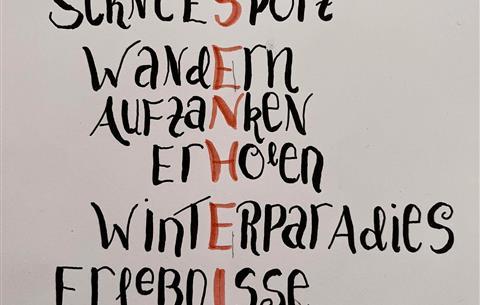 SCHNEESPORT
WANdErn
AUFzaNkEN
ErHolEn
WinTErparAdies
ErlEbnIsse